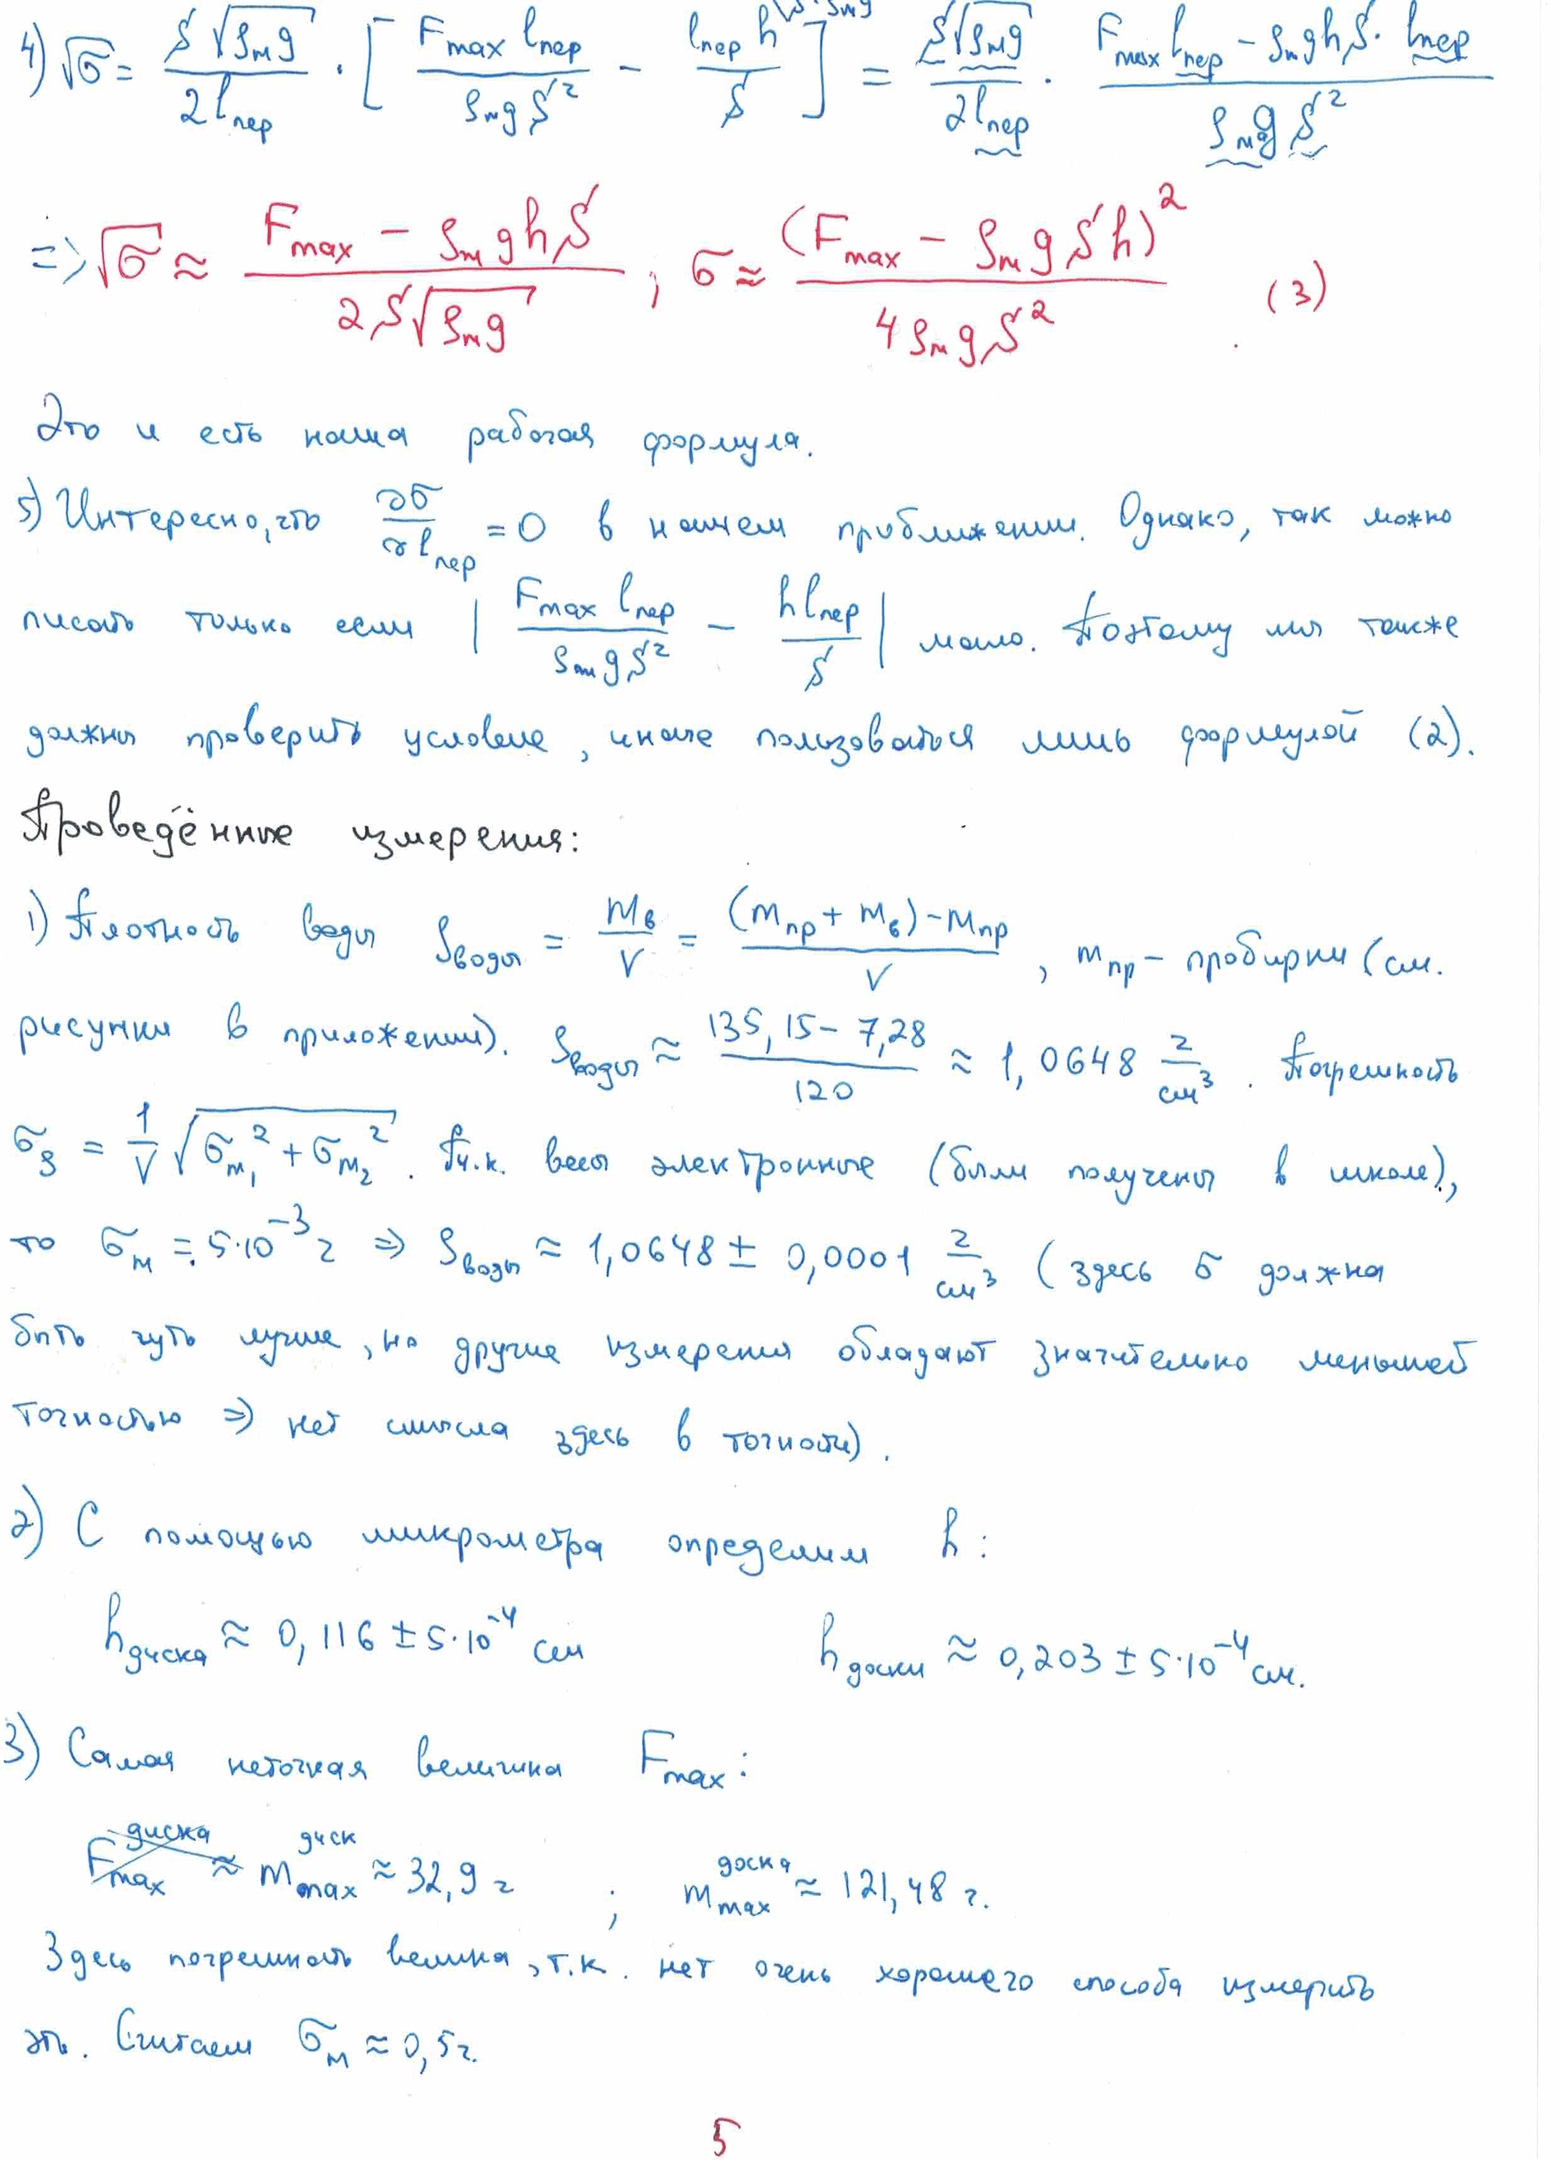 4) √σ = S√(ρₘg) / 2lпер · [ Fmax lпер / ρₘgS² − lпер h / S ] = S√(ρₘg) / 2lпер · (Fmax lпер − ρₘghS · lпер) / ρₘgS²
=> √σ ≈ (Fmax − ρₘghS) / 2S√(ρₘg) ; σ ≈ (Fmax − ρₘgSh)² / 4ρₘgS² (3)
Это и есть наша рабочая формула.
5) Интересно, что ∂σ/∂lпер = 0 в нашем приближении. Однако, так можно
писать только если | Fmax lпер / ρₘgS² − hlпер / S | мало. Поэтому мы также
должны проверить условие, иначе пользоваться лишь формулой (2).
Проведённые измерения:
1) Плотность воды ρводы = mв / V = ((mпр + mв) − mпр) / V , mпр − пробирки (см.
рисунки в приложении). ρводы ≈ (135,15 − 7,28) / 120 ≈ 1,0648 г/см³. Погрешность
σρ = 1/V √(σm₁² + σm₂²). Т.к. весы электронные (были получены в школе),
то σm = 5·10⁻³ г => ρводы ≈ 1,0648 ± 0,0001 г/см³ (здесь σ должна
быть чуть лучше, но другие измерения обладают значительно меньшей
точностью => нет смысла здесь в точности).
2) С помощью микрометра определим h:
hдиска ≈ 0,116 ± 5·10⁻⁴ см hдоски ≈ 0,203 ± 5·10⁻⁴ см.
3) Самая неточная величина Fmax:
Fmax диска ≈ mmax диск ≈ 32,9 г ; mmax доска ≈ 121,48 г.
Здесь погрешность велика, т.к. нет очень хорошего способа измерить
это. Считаем σm ≈ 0,5 г.
5